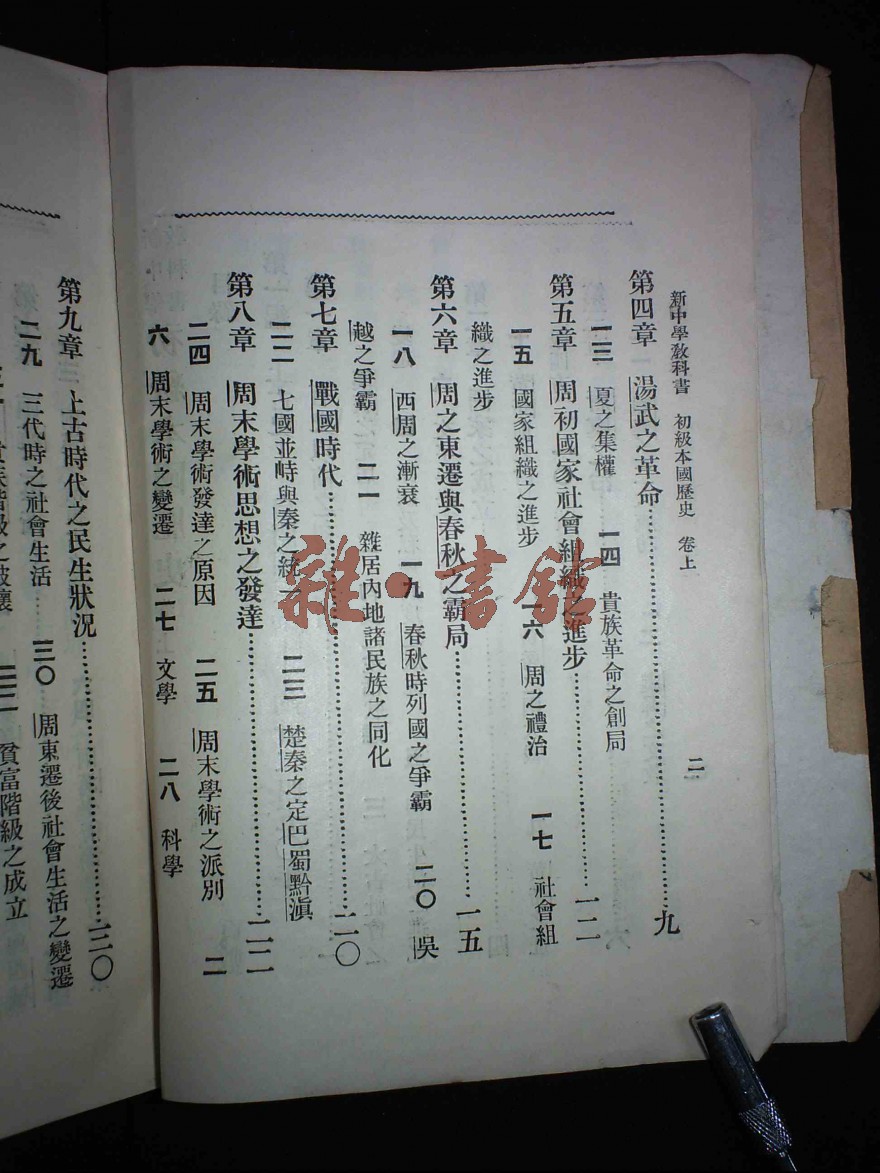 新中學教科書 初級本國歷史 卷上
二
第四章 湯武之革命……九
一三 夏之集權 一四 貴族革命之創局
第五章 周初國家社會組織之進步……一二
一五 國家組織之進步 一六 周之禮治 一七 社會組
織之進步
第六章 周之東遷與春秋之霸局……一五
一八 西周之漸衰 一九 春秋時列國之爭霸 二〇 吳
越之爭霸 二一 雜居內地諸民族之同化
第七章 戰國時代……二〇
二二 七國並峙與秦之統一 二三 楚秦之定巴蜀黔滇
第八章 周末學術思想之發達……二二
二四 周末學術發達之原因 二五 周末學術之派別 二
六 周末學術之變遷 二七 文學 二八 科學
第九章 上古時代之民生狀況……三〇
二九 三代時之社會生活 三〇 周東遷後社會生活之變遷
貧富階級之成立
雜·書館